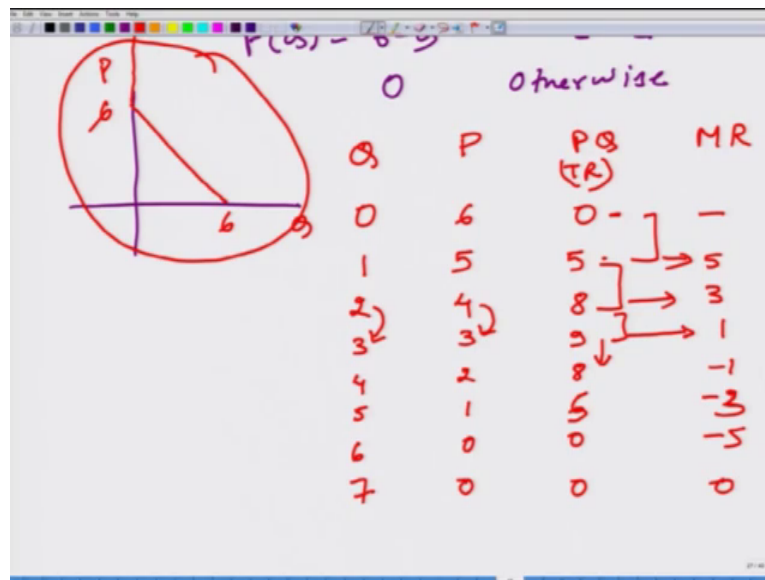 P(Q) = 6-Q
0 Otherwise
P
6
6 Q
Q P PQ MR
(TR)
0 6 0 —
1 5 5 5
2 4 8 3
3 3 9 1
4 2 8 -1
5 1 5 -3
6 0 0 -5
7 0 0 0